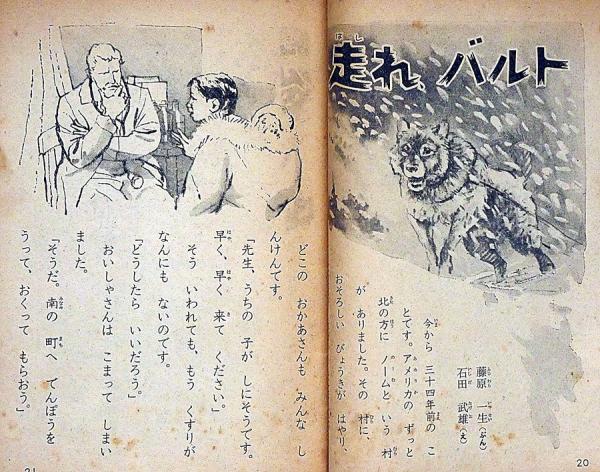 走れ、バルト
はし
藤原 一生(ぶん)
ふじわら いっせい
石田 武雄(え)
いしだ たけお
今から 三十四年前の こ
とです。アメリカの ずっと
北の方に ノームと いう 村
が ありました。その 村に、
おそろしい びょうきが はやり、
どこの おかあさんも みんな し
んけんです。
「先生、うちの 子が しにそうです。
早く、早く 来て ください。」
そう いわれても、もう くすりが
なんにも ないのです。
「どうしたら いいだろう。」
おいしゃさんは こまって しまい
ました。
「そうだ。南の 町へ でんぽうを
うって、おくって もらおう。」
20
21